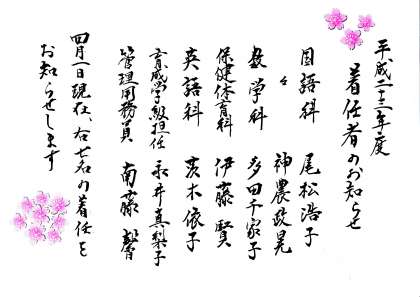 平成二十三年度
着任者のお知らせ
国語科 尾松浩子
〃 神農政晃
数学科 多田千家子
保健体育科 伊藤賢
英語科 茨木依子
育成学級担任 永井真梨子
管理用務員 南藤馨
四月一日現在、右七名の着任を
お知らせします